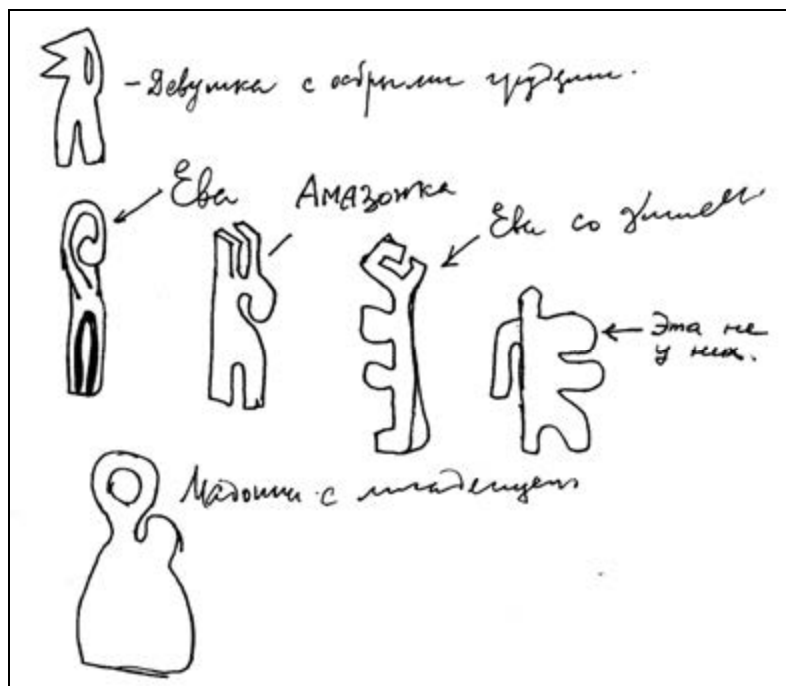 - Девушка с острыми грудями.
Ева
Амазонка
Ева со змием
Эта не
у них.
Мадонна с младенцем